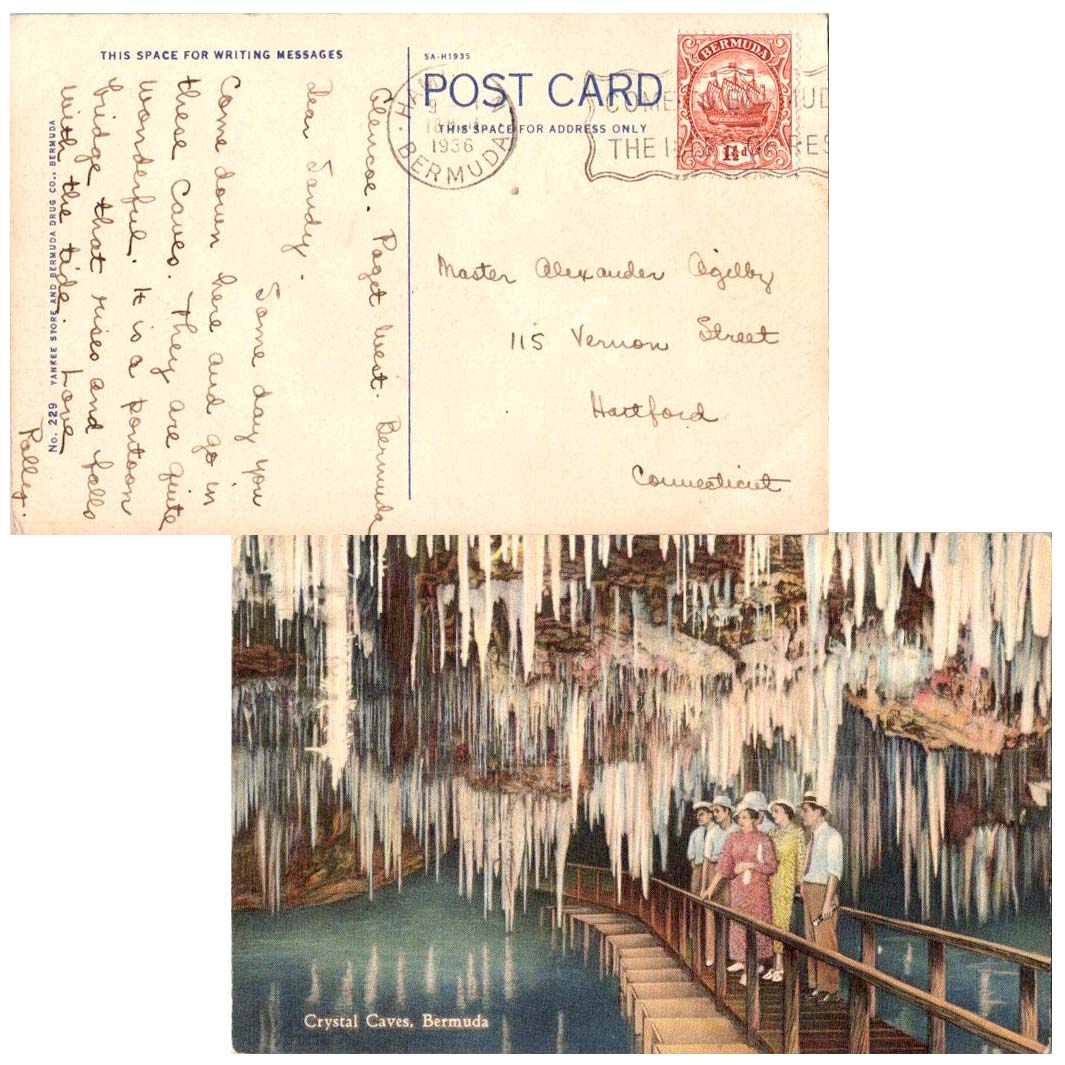 THIS SPACE FOR WRITING MESSAGES
Glencoe. Paget West. Bermuda
Dear Sandy.
Some day you
Come down here and go in
these Caves. They are quite
wonderful. It is a pontoon
bridge that rises and falls
with the tide. Love
Polley.
No. 229 YANKEE STORE AND BERMUDA DRUG CO., BERMUDA
SA-H1935
POST CARD
THIS SPACE FOR ADDRESS ONLY
BERMUDA
1936
BERMUDA
1½d
COME
THE
Master Alexander Ogilby
115 Vernon Street
Hartford
Connecticut
Crystal Caves, Bermuda